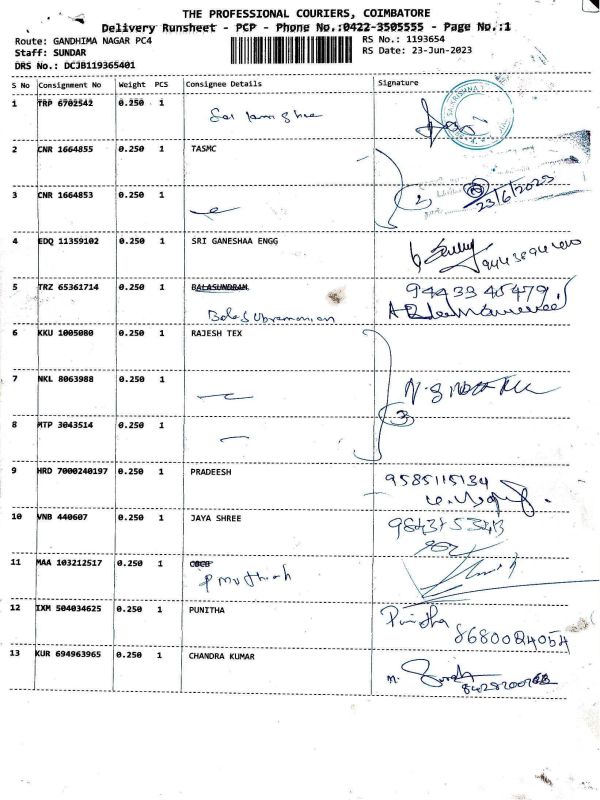 THE PROFESSIONAL COURIERS, COIMBATORE
Delivery Runsheet - PCP - Phone No.:0422-3505555 - Page No.:1
Route: GANDHIMA NAGAR PC4
RS No.: 1193654
Staff: SUNDAR
RS Date: 23-Jun-2023
DRS No.: DCJB119365401
S No Consignment No Weight PCS Consignee Details Signature
1 TRP 6702542 0.250 1
2 CNR 1664855 0.250 1 TASMC
3 CNR 1664853 0.250 1 2 23/6/2023
4 EDQ 11359102 0.250 1 SRI GANESHAA ENGG
5 TRZ 65361714 0.250 1 BALASUNDRAM 94433 45479
Balasubramanian
6 KKU 1005080 0.250 1 RAJESH TEX
7 NKL 8063988 0.250 1
8 MTP 3043514 0.250 1 3
9 HRD 7000240197 0.250 1 PRADEESH 9585115134
10 VNB 440607 0.250 1 JAYA SHREE
11 MAA 103212517 0.250 1
P Muthiah
12 IXM 504034625 0.250 1 PUNITHA Punitha
8680084054
13 KUR 694963965 0.250 1 CHANDRA KUMAR